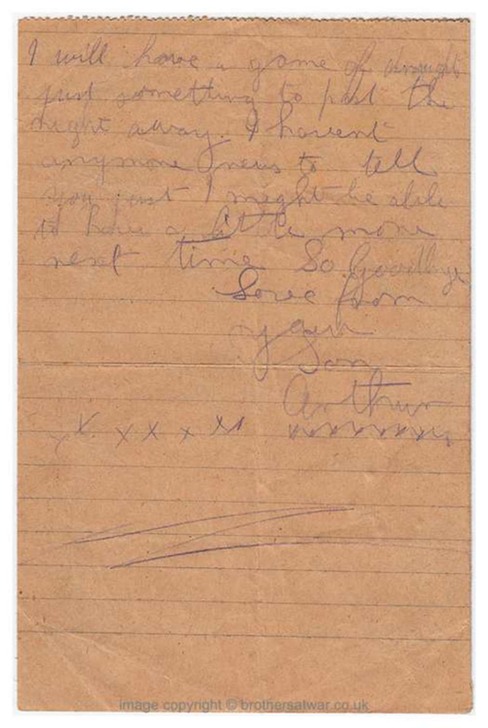 I will have a game of draught
just something to past the
night away. I havent
anymore news to tell
you just I might be able
to have a little more
next time So Goodbye
Love from
your
Son
Arthur
x x x x x x x
xxxxxxxx
image copyright © brothersatwar.co.uk